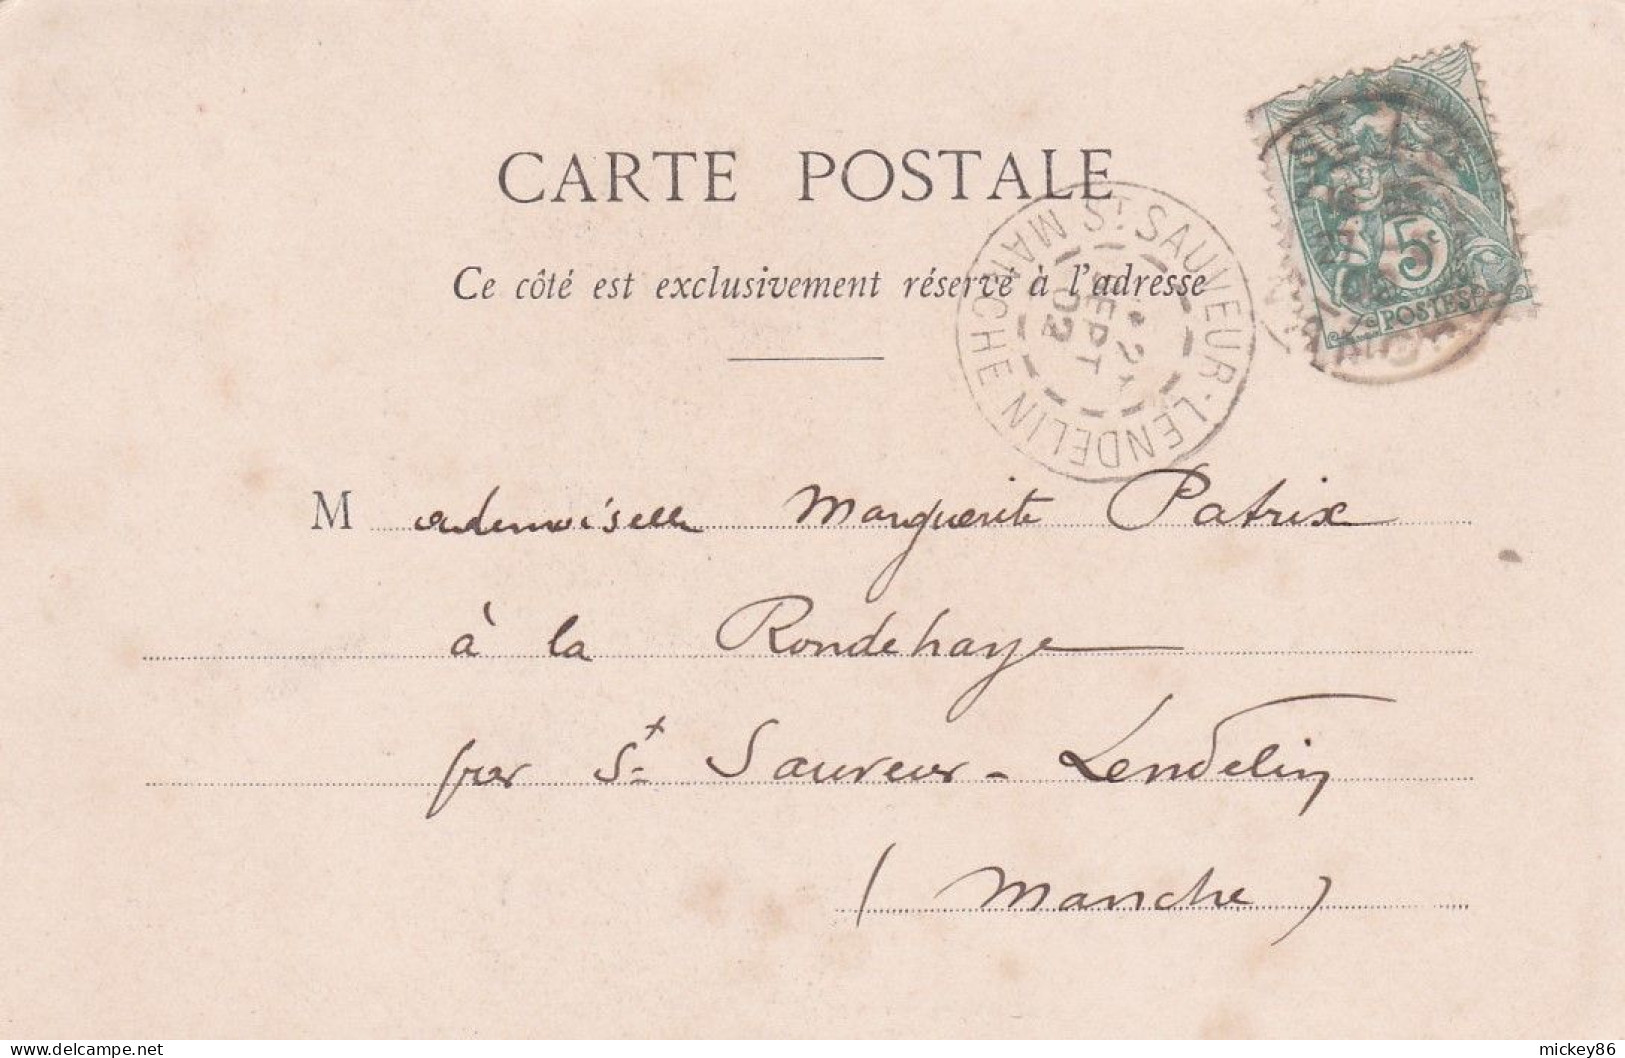 CARTE POSTALE
Ce côté est exclusivement réservé à l'adresse
ST SAUVEUR-LENDELIN MANCHE
2
SEPT
02
5c
POSTES
Mademoiselle Marguerite Patrix
à la Rondehaye
par St Sauveur-Lendelin
(Manche)
www.delcampe.net
mickey86